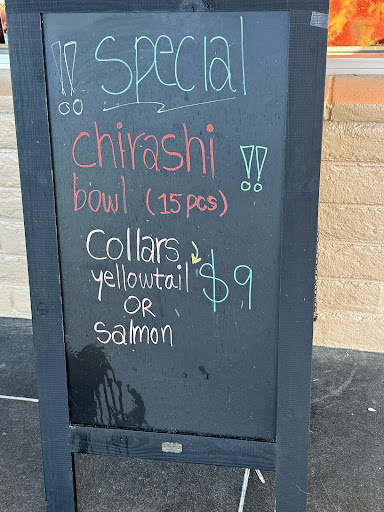 !! special
chirashi !!
bowl (15pcs)
Collars
yellowtail $9
OR
salmon